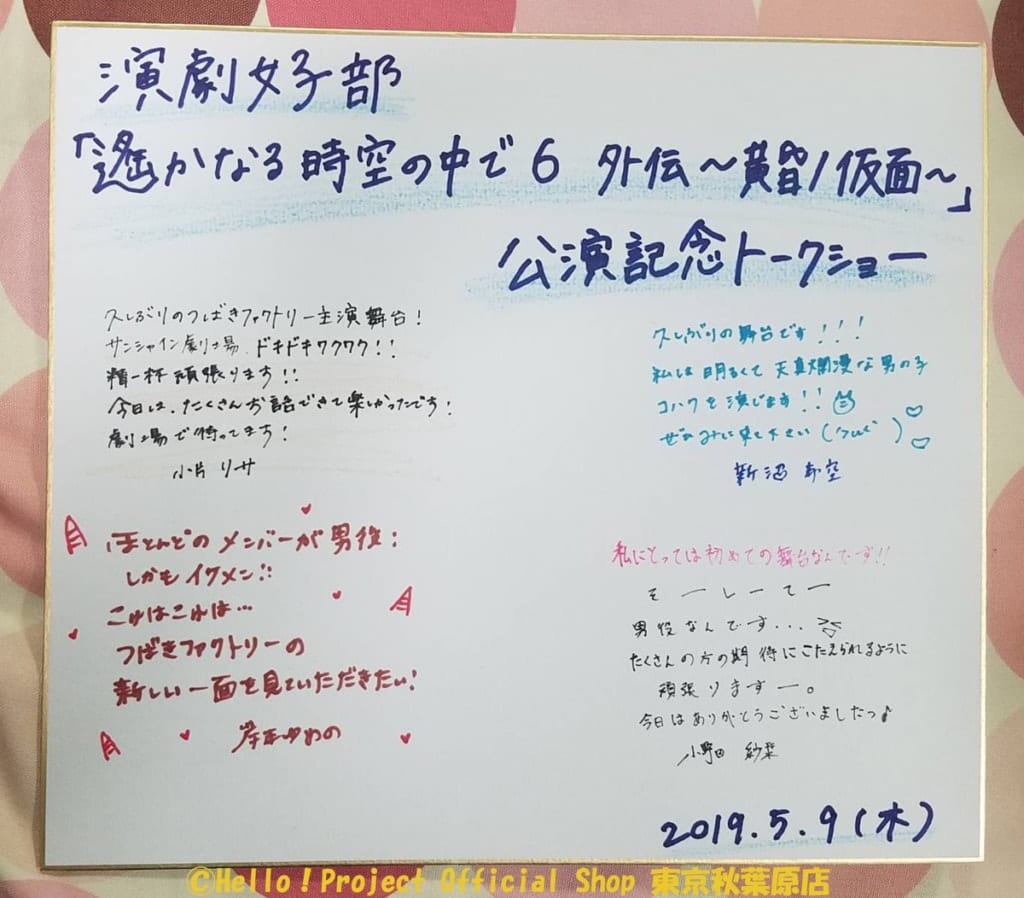 演劇女子部
「遙かなる時空の中で6 外伝〜黄昏ノ仮面〜」
公演記念トークショー
久しぶりのつばきファクトリー主演舞台!
サンシャイン劇場 ドキドキワクワク!!
精一杯頑張ります!!
今日は、たくさんお話できて楽しかったです!
劇場で待ってます!
小片リサ
久しぶりの舞台です!!!
私は明るくて天真爛漫な男の子
コハクを演じます!!
ぜひみに来て下さい
新沼希空
ほとんどのメンバーが男役!
しかもイケメン!!
これはこれは…
つばきファクトリーの
新しい一面を見ていただきたい!
岸本ゆめの
私にとっては初めての舞台なんです!!
そーしーてー
男役なんです...
たくさんの方の期待にこたえられるように
頑張りますー。
今日はありがとうございましたっ♪
小野田 紗栞
2019.5.9(木)
©Hello!Project Official Shop 東京秋葉原店